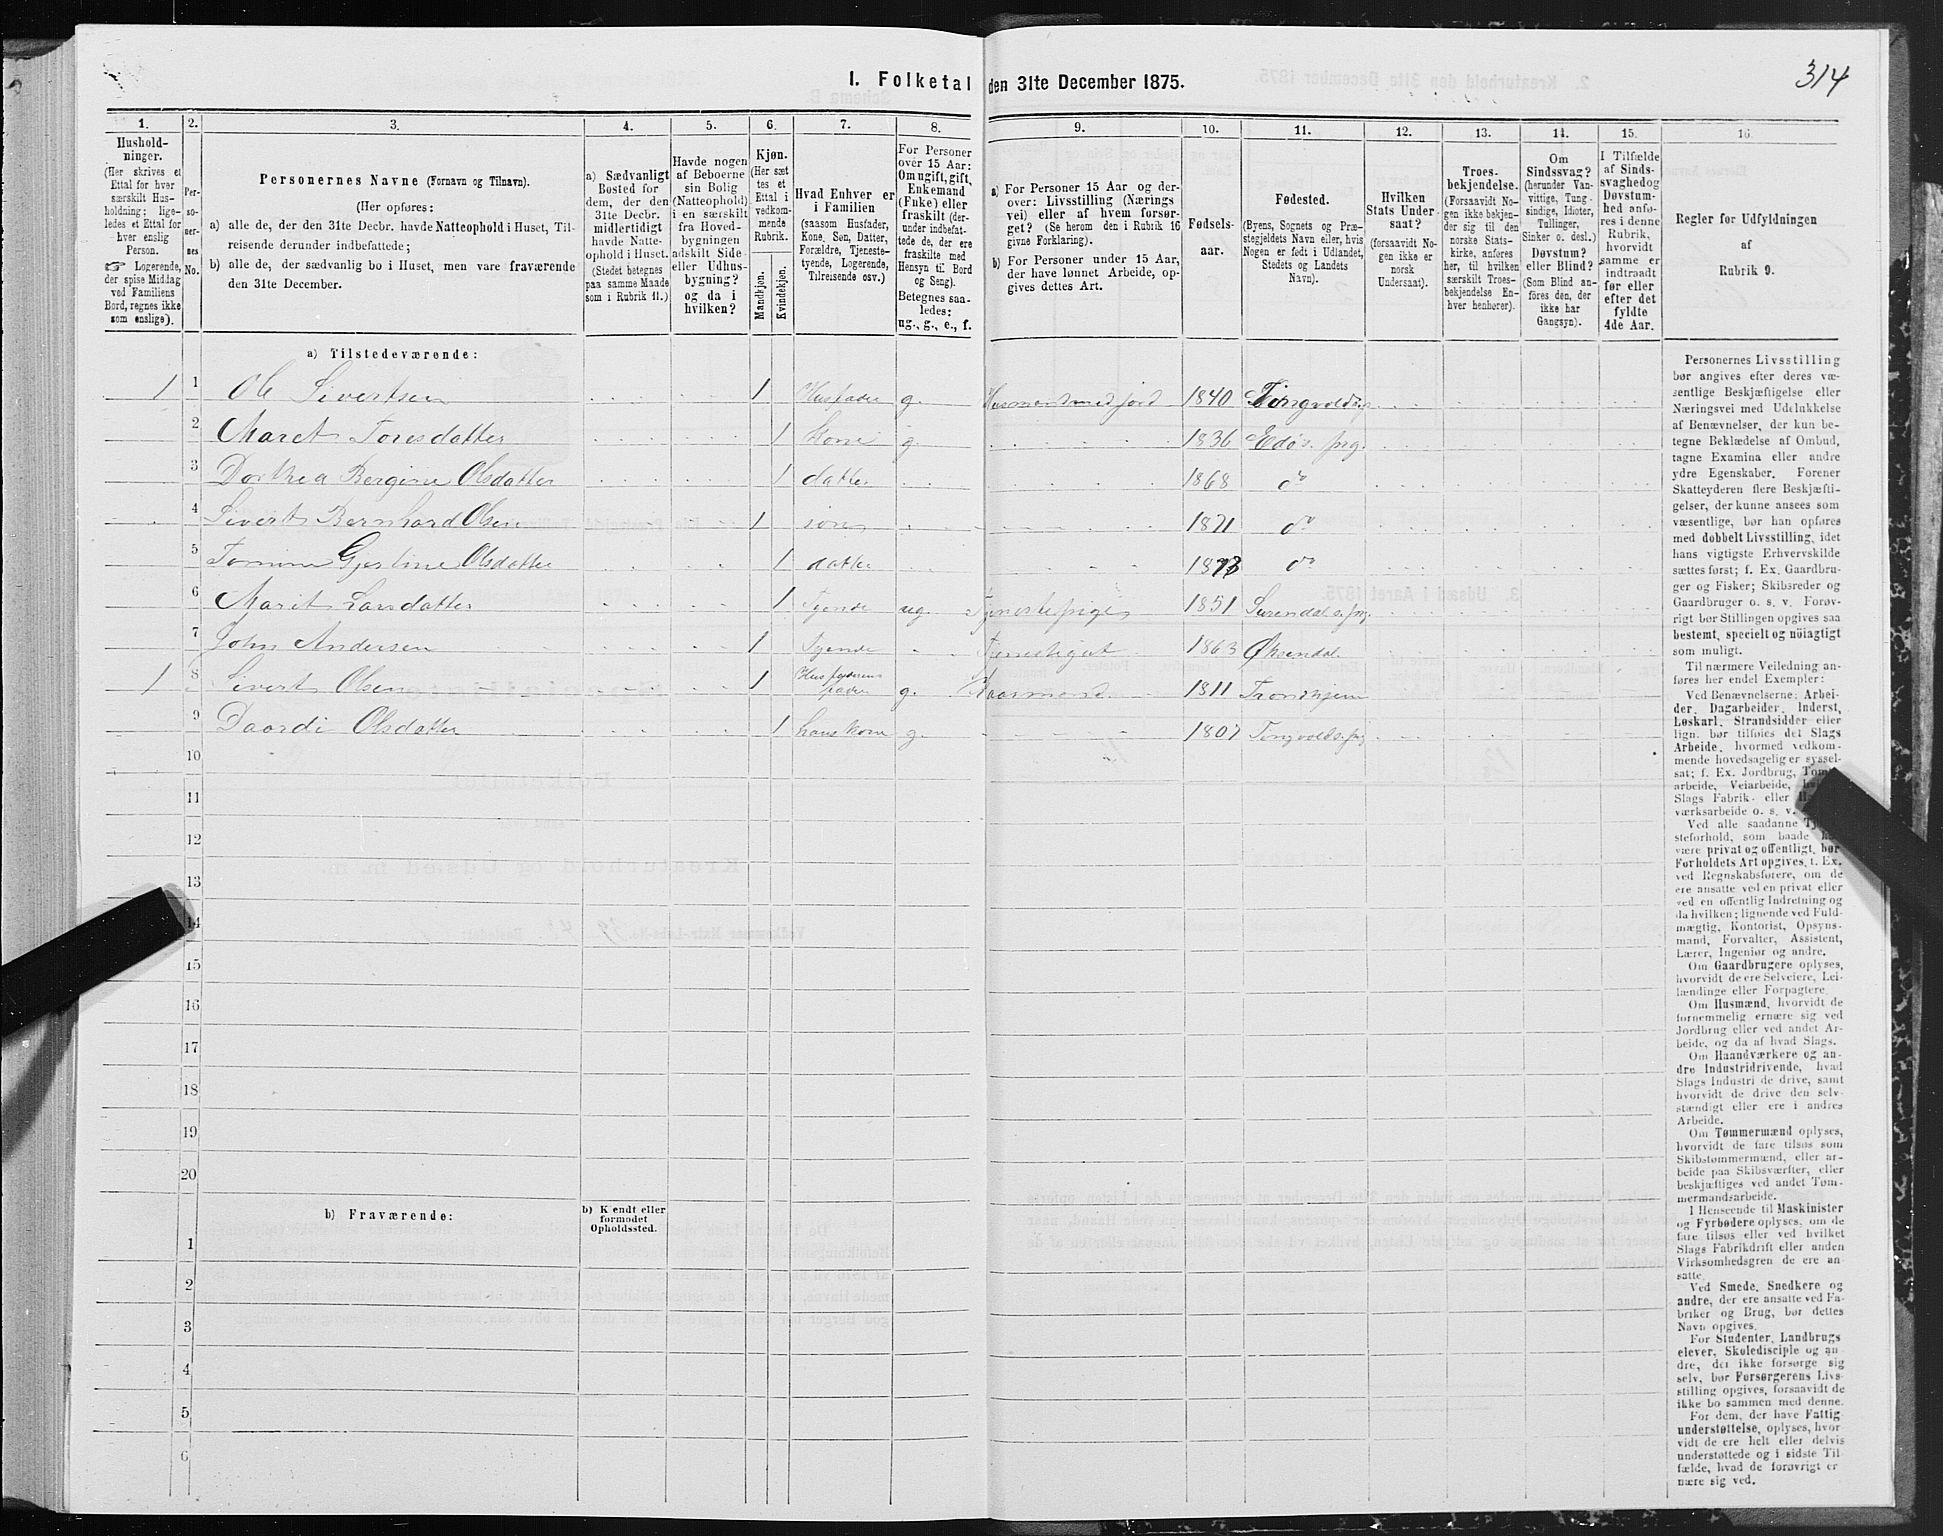 314
I. Folketal den 31te December 1875.
1.
Hushold-
ninger.
(Her skrives et
Ettal for hver
særskilt Hus-
holdning; lige-
ledes et Ettal for
hver enslig
Person.
☞ Logerende,
der spise Middag
ved Familiens
Bord, regnes ikke
som enslige).
2.
Per-
so-
ner-
nes
No.
3.
Personernes Navne (Fornavn og Tilnavn).
(Her opføres:
a) alle de, der den 31te Decbr. havde Natteophold i Huset, Til-
reisende derunder indbefattede;
b) alle de, der sædvanlig bo i Huset, men vare fraværende
den 31te December.
4.
a) Sædvanligt
Bosted for
dem, der den
31te Decbr.
midlertidigt
havde Natte-
ophold i Huset.
(Stedet betegnes
paa samme Maade
som i Rubrik 11.)
5.
Havde nogen
af Beboerne
sin Bolig
(Natteophold)
i en særskilt
fra Hoved-
bygningen
adskilt Side-
eller Udhus-
bygning?
og da i
hvilken?
6.
Kjøn.
(Her sæt-
tes et
Ettal i
vedkom-
mende
Rubrik.
Mandkjøn.
Kvindekjøn.
7.
Hvad Enhver er
i Familien
(saasom Husfader,
Kone, Søn, Datter,
Forældre, Tjeneste-
tyende, Logerende,
Tilreisende osv.)
8.
For Personer
over 15 Aar:
Om ugift, gift,
Enkemand
(Enke) eller
fraskilt (der-
under indbefat-
tede de, der ere
fraskilte med
Hensyn til Bord
og Seng).
Betegnes saa-
ledes:
ug., g., e., f.
9.
a) For Personer 15 Aar og der-
over: Livsstilling (Nærings
vei) eller af hvem forsør-
get? (Se herom den i Rubrik 16
givne Forklaring).
b) For Personer under 15 Aar,
der have lønnet Arbeide, op-
gives dettes Art.
10.
Fødsels-
aar.
11.
Fødested.
(Byens, Sognets og Præ-
stegjeldets Navn eller, hvis
Nogen er født i Udlandet,
Stedets og Landets
Navn).
12.
Hvilken
Stats Under-
saat?
(forsaavidt No-
gen ikke er
norsk
Undersaat).
13.
Troes-
bekjendelse.
(Forsaavidt No-
gen ikke bekjen-
der sig til den
norske Stats-
kirke, anføres
her, til hvilken
særskilt Troes-
bekjendelse En-
hver henhører).
14.
Om
Sindssvag?
(herunder Van-
vittige, Tung-
sindige, Idioter,
Tullinger,
Sinker o. desl.)
Døvstum?
eller Blind?
(Som Blind an-
føres den, der
ikke har
Gangsyn).
15.
I Tilfælde
af Sinds-
svaghed og
Døvstum-
hed anfø-
res i denne
Rubrik,
hvorvidt
samme er
indtraadt
før eller
efter det
fyldte
4de Aar.
16.
Regler for Udfyldningen
af
Rubrik 9.
a) Tilstedeværende:
1 1 Ole Sivertsen 1 Husfader g. Husmand med jord 1840 Tingvolds
2 Maret Toresdatter 1 Kone g. 1836 Edøs prg.
3 Dorthea Bergine Olsdatter 1 datter 1868 do
4 Sivert Bernhard Olsen 1 søn 1871 do
5 Tomine Gjertine Olsdatter 1 datter 1873 do
6 Marit Larsdatter 1 Tyende ug. Tjenestepige 1851 Surendals prg.
7 John Andersen 1 Tyende Tjenestegut 1863 Øksendal
1 8 Sivert Olsen 1 Husfaderens fader g. Kaarmand 1811 Trondhjem
9 Olsdatter 1 hans kone g. 1807 Tingvolds prg
10
11
12
13
14
15
16
17
18
19
20
b) Fraværende:
b) Kjendt eller
formodet
Opholdssted.
1
2
3
4
5
6
Personernes Livsstilling
bør angives efter deres væ-
sentlige Beskjæftigelse eller
Næringsvei med Udelukkelse
af Benævnelser, der kun be-
tegne Beklædelse af Ombud,
tagne Examina eller andre
ydre Egenskaber. Forener
Skatteyderen flere Beskjæfti-
gelser, der kunne ansees som
væsentlige, bør han opføres
med dobbelt Livsstilling, idet
hans vigtigste Erhvervskilde
sættes først; f. Ex. Gaardbru-
ger og Fisker; Skibsreder og
Gaardbruger o. s. v. Forøv-
rigt bør Stillingen opgives saa
bestemt, specielt og nöiagtigt
som muligt.
Til nærmere Veiledning an-
føres her endel Exempler:
Ved Benævnelserne: Arbei-
der, Dagarbeider, Inderst,
Løskarl, Strandsidder eller
lign. bør tilføies det Slags
Arbeide, hvormed vedkom-
mende hovedsagelig er syssel-
sat; f. Ex. Jordbrug,
arbeide, Veiarbeide,
Slags Fabrik- eller
værksarbeide o. s. v.
Ved alle saadanne
steforhold, som baade
være privat og offentligt, bør
Forholdets Art opgives, f. Ex.
ved Regnskabsførere, om de
ere ansatte ved en privat eller
ved en offentlig Indretning og
da hvilken; lignende ved Fuld-
mægtig, Kontorist, Opsyns-
mand, Forvalter, Assistent,
Lærer, Ingeniør og andre.
Om Gaardbrugere oplyses,
hvorvidt de ere Selveiere, Lei-
lændinge eller Forpagtere.
Om Husmænd, hvorvidt de
fornemmelig ernære sig ved
Jordbrug eller ved andet Ar-
beide, og da af hvad Slags.
Om Haandværkere og an-
dre Industridrivende, hvad
Slags Industri de drive, samt
hvorvidt de drive den selv-
stændigt eller ere i andres
Arbeide.
Om Tømmermænd oplyses,
hvorvidt de fare tilsøs som
Skibstømmermænd, eller ar-
beide paa Skibsværfter, eller
beskjæftiges ved andet Tøm-
mermandsarbeide.
I Henseende til Maskinister
og Fyrbødere oplyses, om de
fare tilsøs eller ved hvilket
Slags Fabrikdrift eller anden
Virksomhedsgren de ere an-
satte.
Ved Smede, Snedkere og
andre, der ere ansatte ved Fa-
briker og Brug, bør dettes
Navn opgives.
For Studenter, Landbrugs
elever, Skoledisciple og an-
dre, der ikke forsørge sig
selv, bør Forsørgerens Livs-
stilling opgives, forsaavidt de
ikke bo sammen med denne.
For dem, der have Fattig-
understøttelse, oplyses, hvor-
vidt de ere helt eller delvis
understøttede og i sidste Til-
fælde, hvad de forøvrigt er-
nære sig ved.